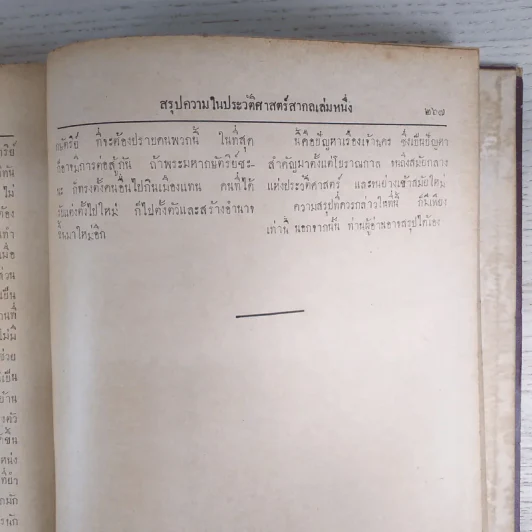 สรุปความในประวัติศาสตร์สากลเล่มหนึ่ง
๒๖๗
กษัตริย์ ที่จะต้องปราบคนพวกนี้ ในที่สุด
ก็อาจมีการต่อสู้กัน ถ้าพระมหากษัตริย์ชะ-
นะ ก็ทรงตั้งคนอื่นไปกินเมืองแทน คนที่ได้
รับแต่งตั้งไปใหม่ ก็ไปตั้งตัวและสร้างอำนาจ
ขึ้นมาใหม่อีก
นี่คือปัญหาเรื่องเจ้านคร ซึ่งเป็นปัญหา
สำคัญมาตั้งแต่โบราณกาล จนถึงสมัยกลาง
แห่งประวัติศาสตร์ และจนย่างเข้าสมัยใหม่
ความสรุปที่ควรกล่าวในที่นี้ ก็มีเพียง
เท่านี้ นอกจากนั้น ท่านผู้อ่านอาจสรุปได้เอง